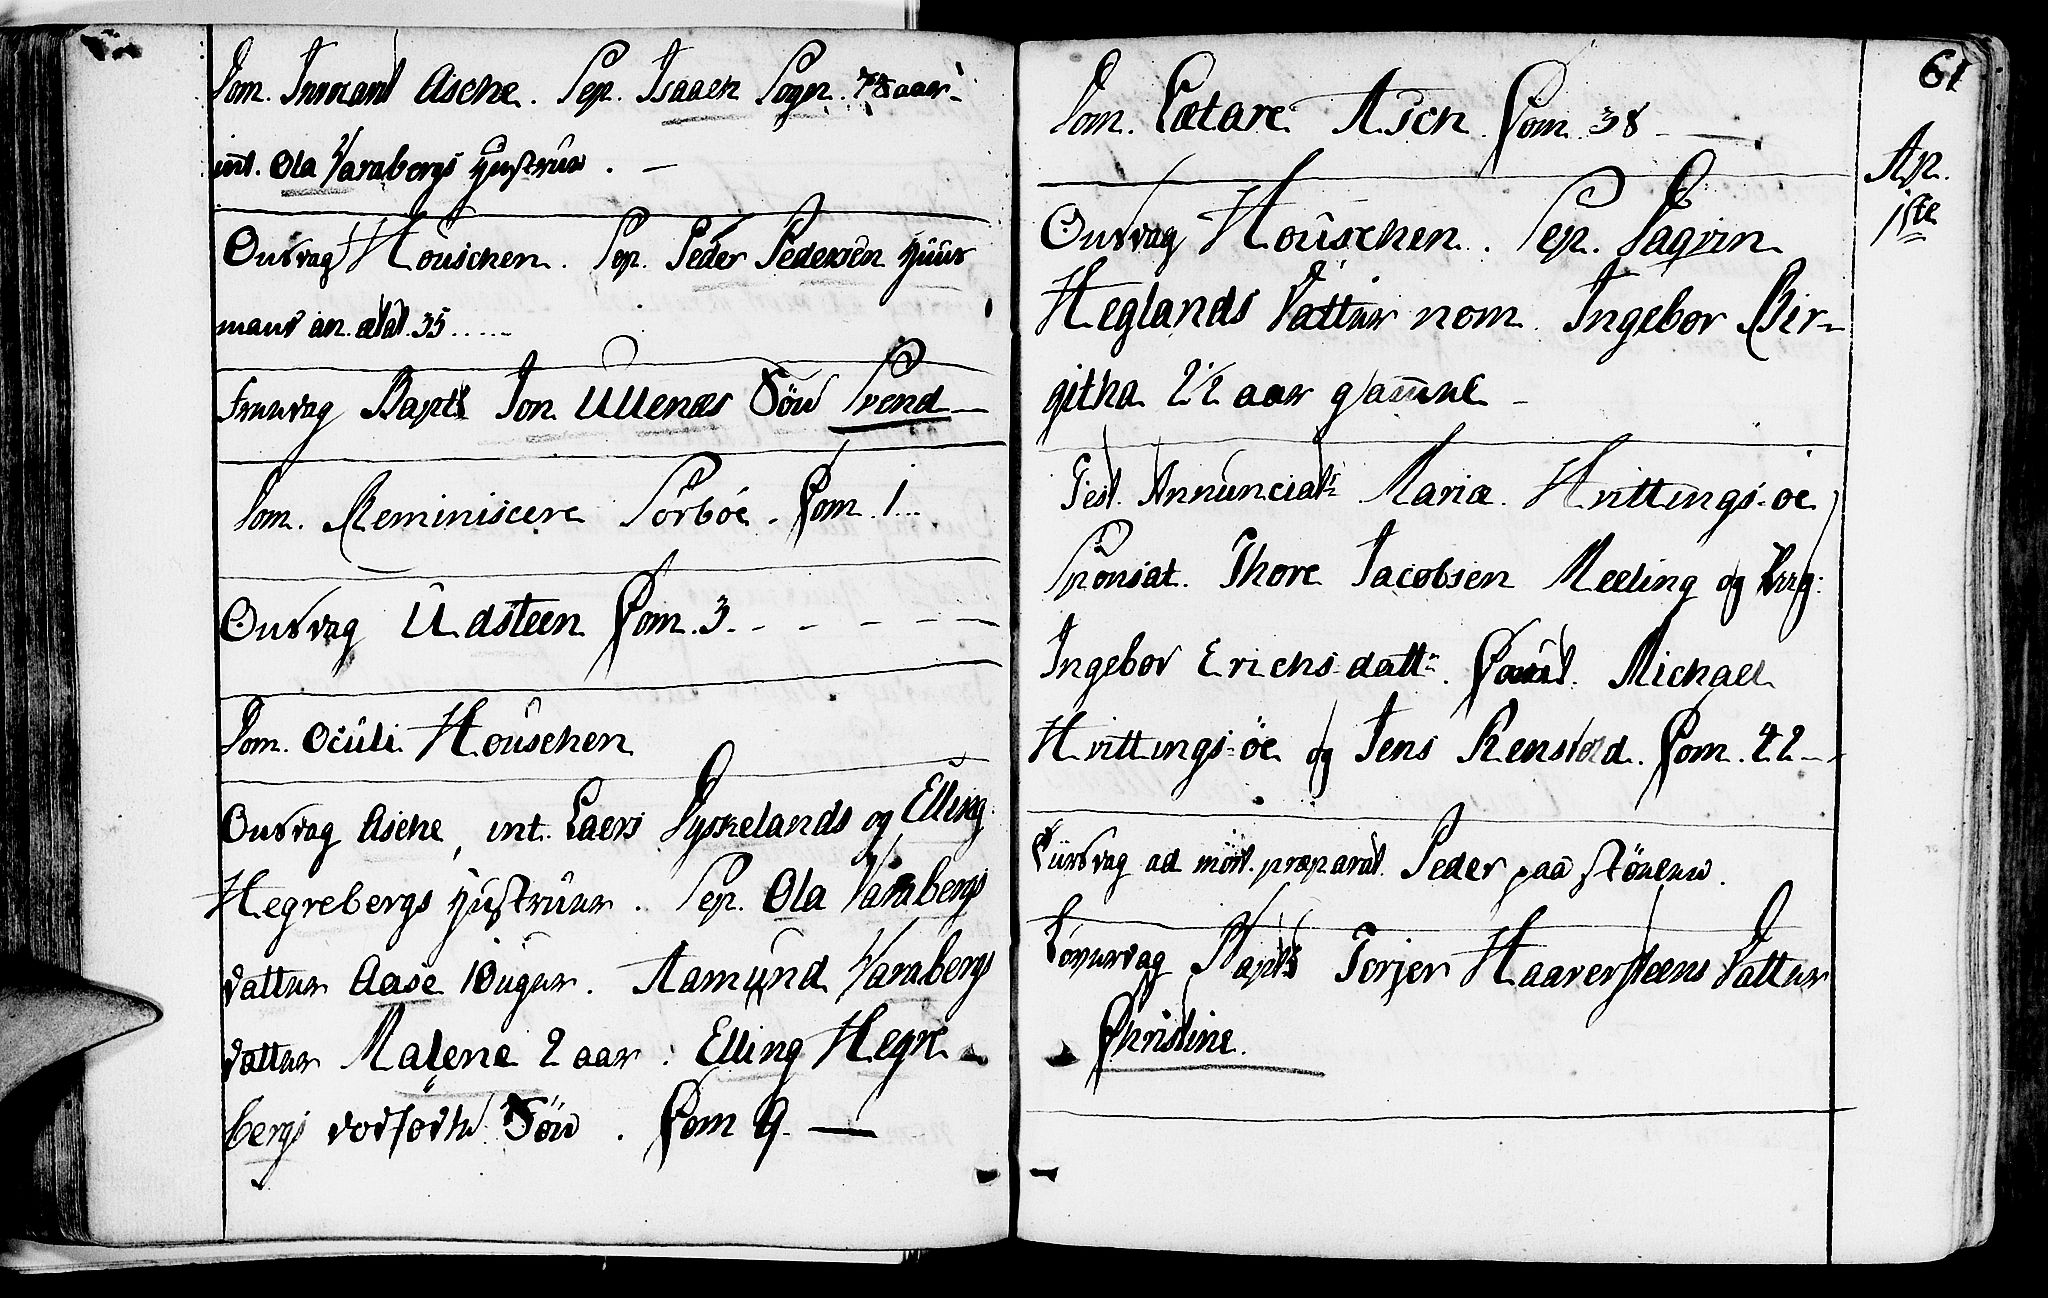 Dom. Invocavit Aske. Sep. Isaach Sogn. 78 aar
int. Ola Varabergs Hustrue. –
Onsdag Houschen. Sep. Peder Pedersen Huus
mand an. ætat. 35.....
Fredag Bapt: Jon Ullenæs Sön Svend –
Dom. Reminiscere Sörböe. Com. 1...
Onsdag Udsteen Com. 3. - - - - - -
Dom. Oculi Houschen
Onsdag Aske, int. Laers Dyskelands og Elling
Hegrebergs Hustruer. Sep. Ola Varabergs
datter Aase 10 uger. Aamund Varabergs
datter Malene 2 aar. Elling Hegre-
bergs dödfödte Sön. Com 9. —
61
Dom. Lætare Asch Com. 38 - —
Apr.
1ste
Onsdag Houschen. Sep. Dagvin
Heglands Datter nom. Ingebor Bir-
githa 2½ aar gammel –
Fest. Annunciat: Mariæ. Hvittings-öe
Sponsat. Thore Jacobsen Meeling og Pig:
Ingebor Erichs datt:. Cavit. Michael
Hvittings-öe og Jens Rensvold. Com. 42 - -
Tiisdag ad mort. præparat. Peder paa Stölene.
Löverdag Bapt: Torjer Haaversteens Datter
Christine.